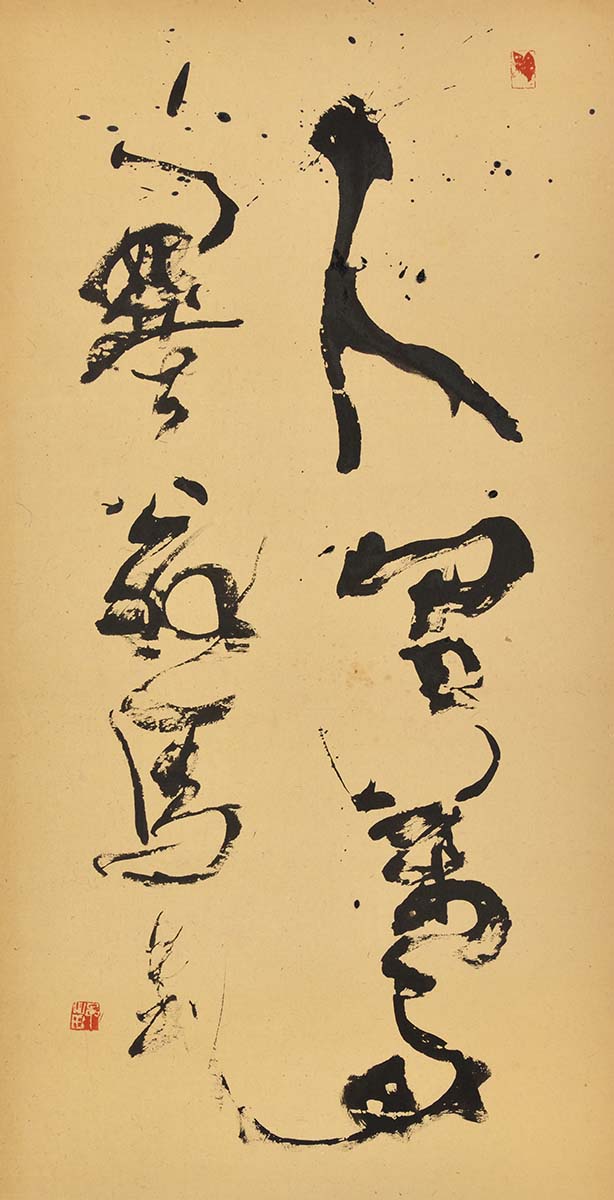 人間萬事
塞翁馬